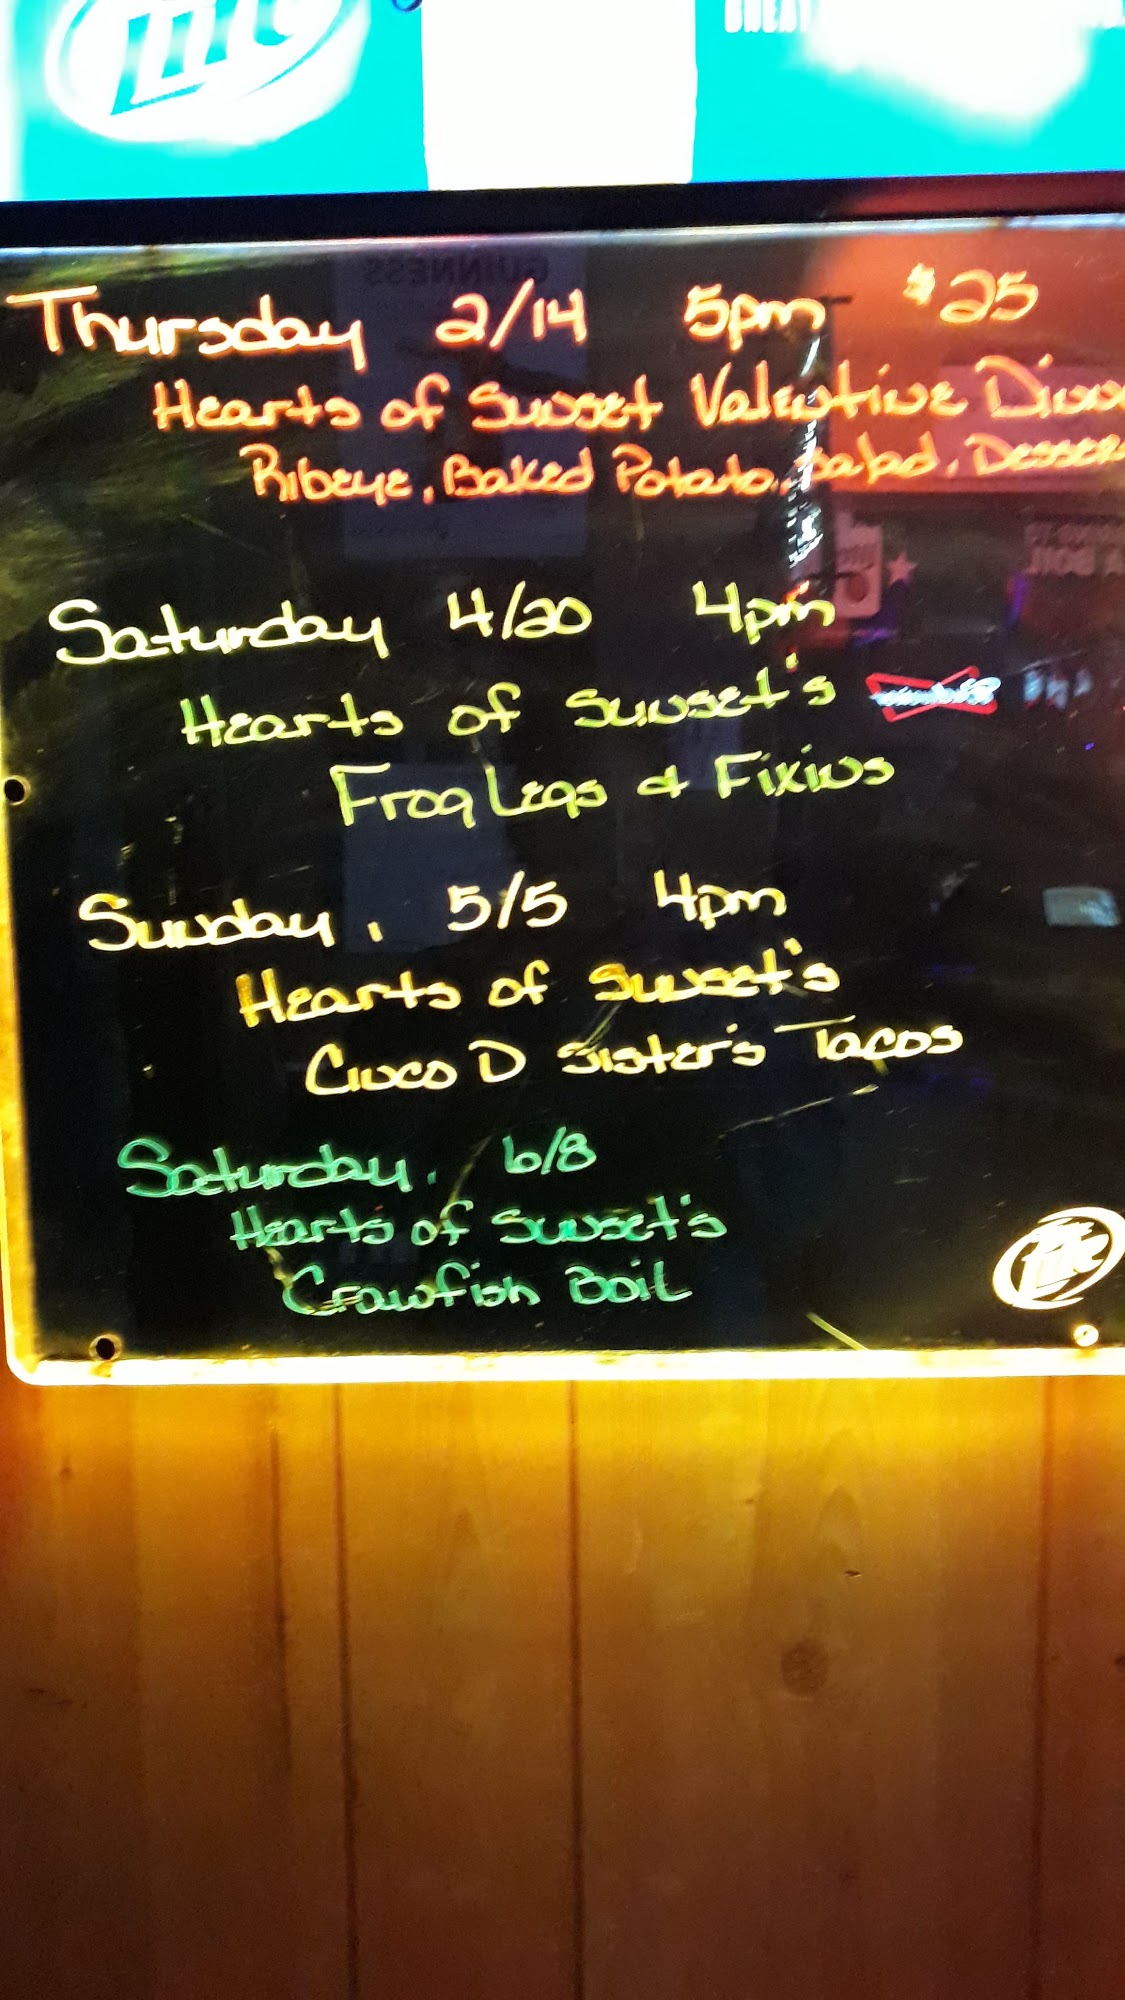 Lite
GREAT
GUINNESS
Thursday 2/14 5pm $25
Hearts of Sunset Valentine Dinn
Ribeye, Baked Potato, Salad, Desser
Saturday 4/20 4pm
Hearts of Sunset's
Budweiser
Frog Legs & Fixins
Sunday, 5/5 4pm
Hearts of Sunset's
Cinco D Sister's Tacos
Saturday, 6/8
Hearts of Sunset's
Crawfish Boil
Lite